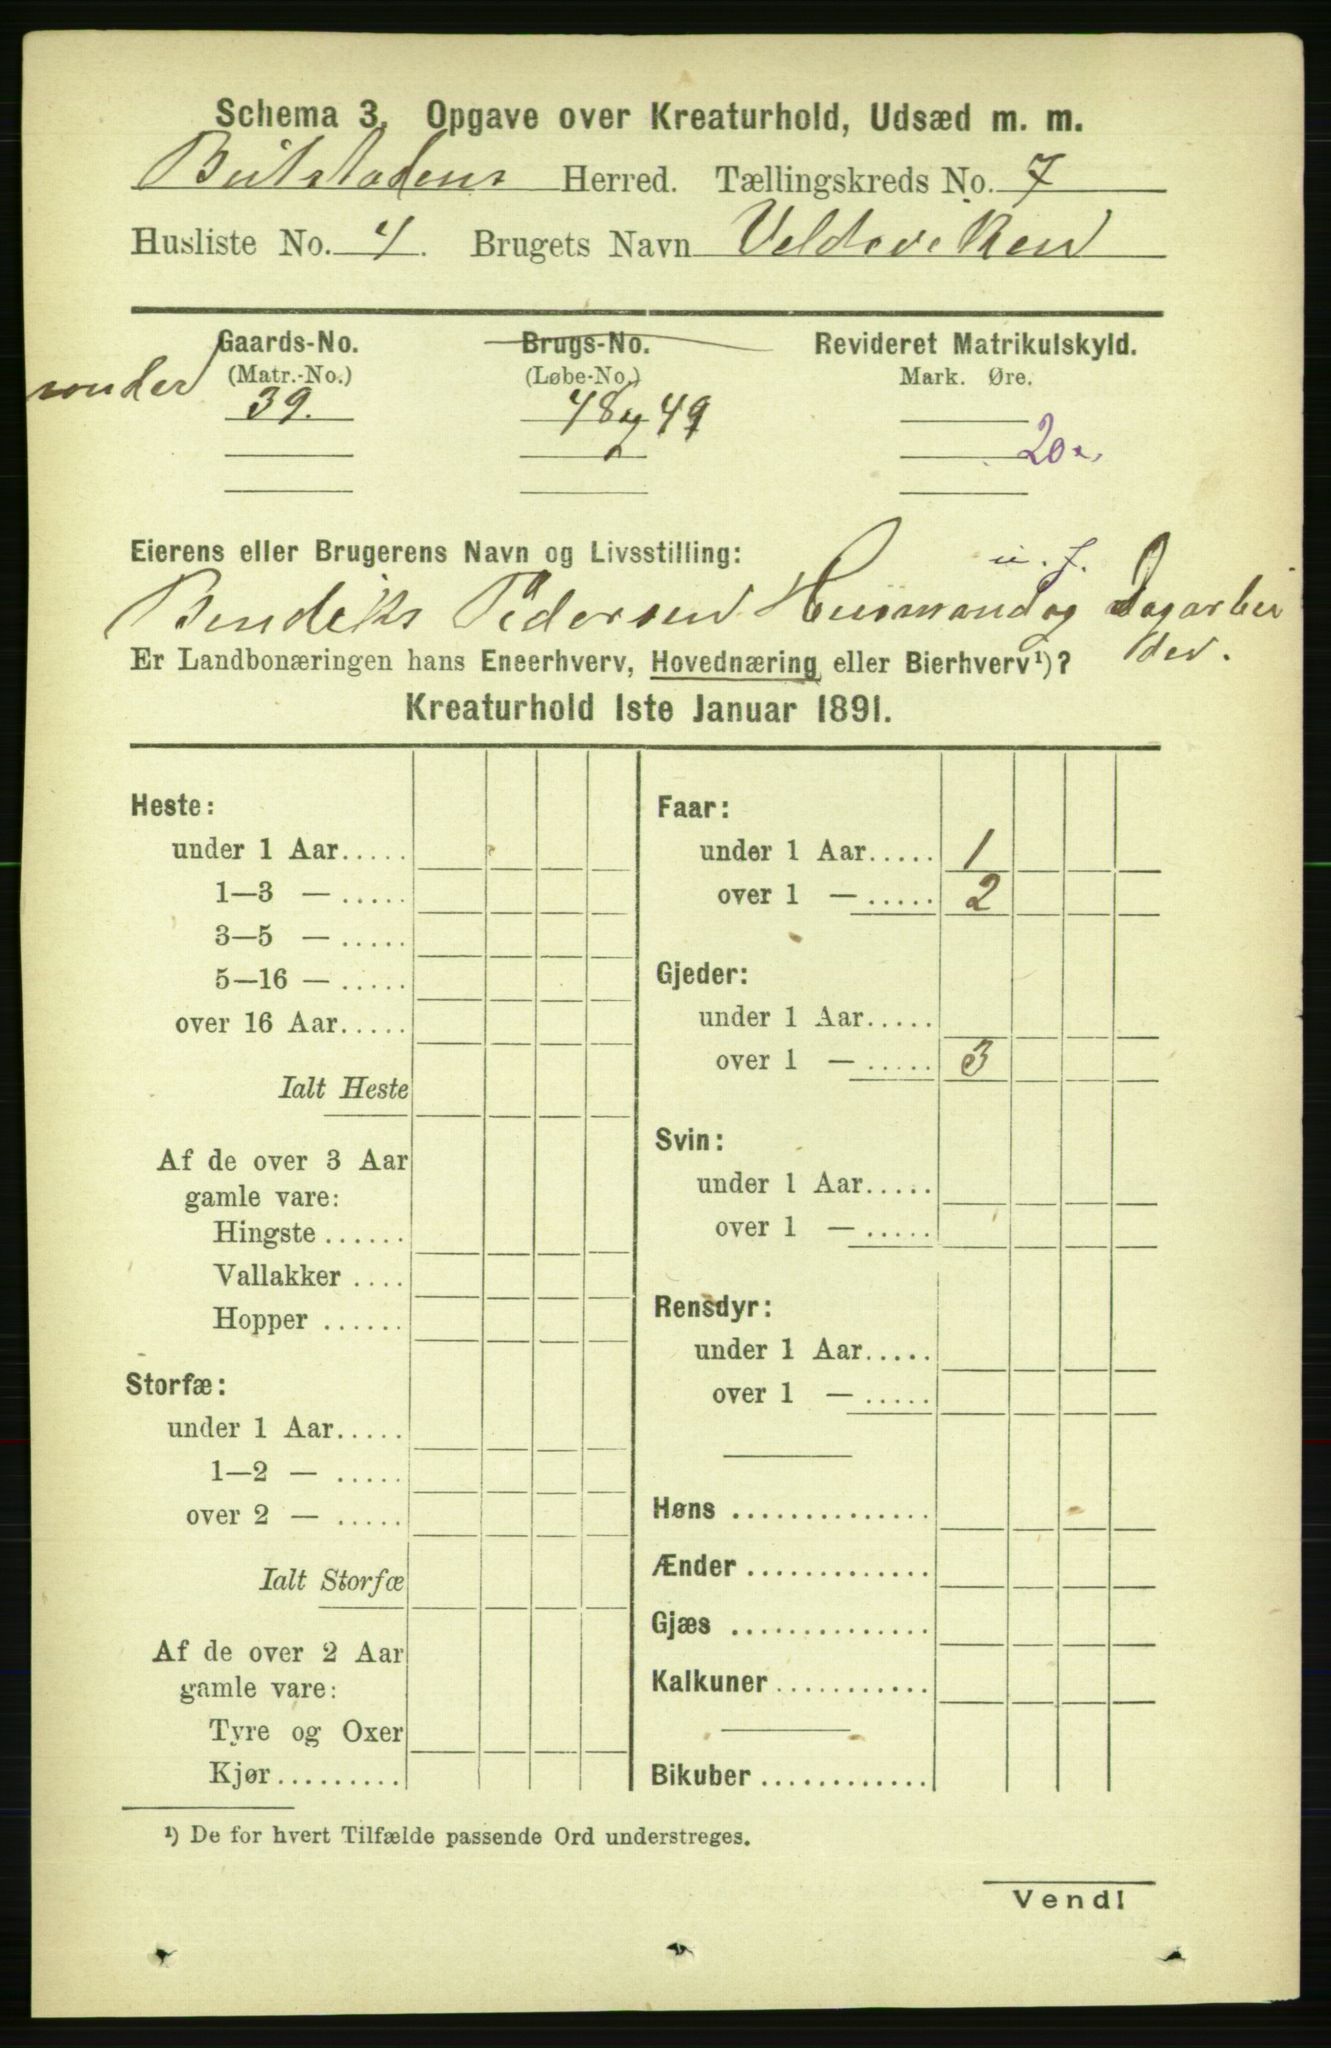 Schema 3. Opgave over Kreaturhold, Udsæd m. m.
Beitstadens Herred. Tællingskreds No. 7
Husliste No. 4. Brugets Navn Veldsviken
Gaards-No. Brugs-No. Revideret Matrikulskyld.
under (Matr.-No.) (Løbe-No.) Mark. Øre.
39. 48 og 49
20
Eierens eller Brugerens Navn og Livsstilling: u. J.
Bendiks Pedersen Husmand og Dagarbei
der.
Er Landbonæringen hans Eneerhverv, Hovednæring eller Bierhverv¹)?
Kreaturhold 1ste Januar 1891.
Heste:
under 1 Aar.....
1—3 — .....
3—5 — .....
5—16 — .....
over 16 Aar.....
Ialt Heste
Af de over 3 Aar
gamle vare:
Hingste ......
Vallakker ....
Hopper ......
Storfæ:
under 1 Aar.....
1—2 — .....
over 2 — .....
Ialt Storfæ
Af de over 2 Aar
gamle vare:
Tyre og Oxer
Kjør.........
Faar:
under 1 Aar..... 1
over 1 — ..... 2
Gjeder:
under 1 Aar.....
over 1 — ..... 3
Svin:
under 1 Aar.....
over 1 — .....
Rensdyr:
under 1 Aar.....
over 1 — .....
Høns ..............
Ænder .............
Gjæs ..............
Kalkuner ...........
Bikuber ............
¹) De for hvert Tilfælde passende Ord understreges.
Vend!